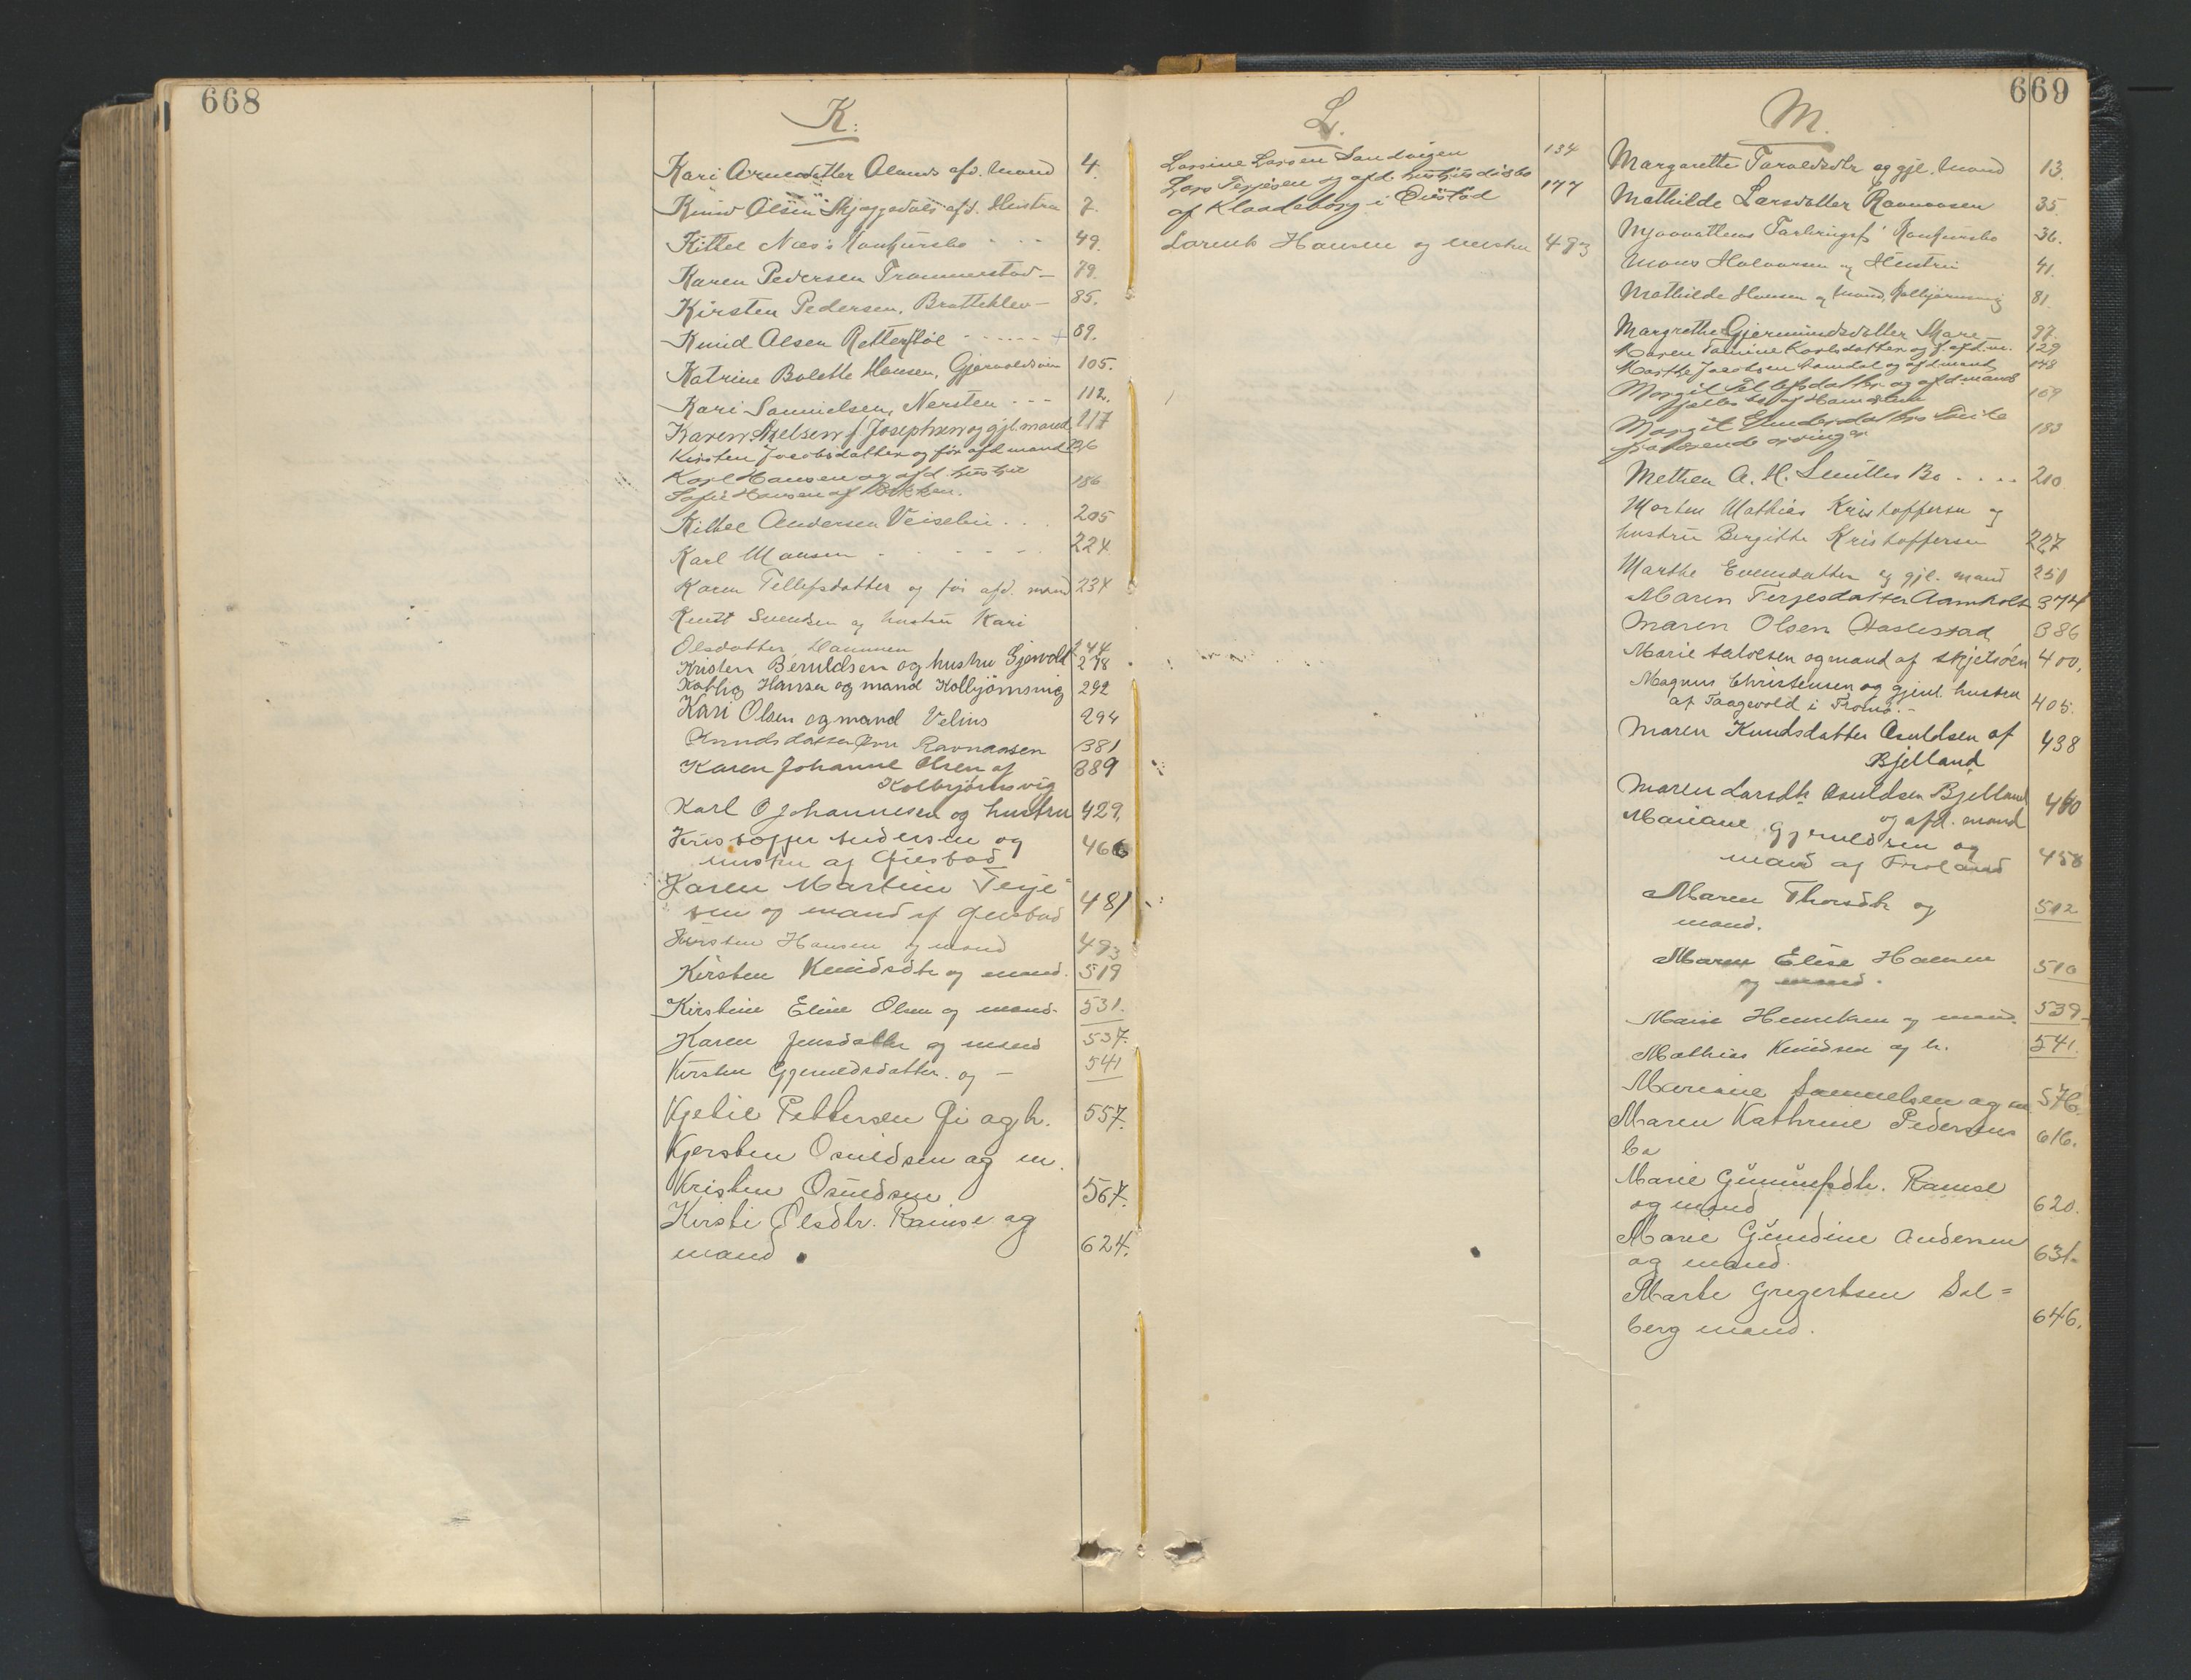 668
K:
Kari Arnesdatter Alands afd. Mand 4.
Knud Olsen Skjæggedals afd. Hustru 7.
Kittel Næs's Konkursbo - - - 49.
Karen Pedersen Trommestad - 79.
Kirsten Pedersen, Bratteklev - 85.
Knud Olsen Retterstøl - - - - - - 89.
Katrine Bolette Hansen, Gjervoldsøen 105.
Kari Samuelsen, Nersten - - - 112.
Karen Nielsen f Josephsen og gjl mand 117
Kirsten Jacobsdatter og før afd mand 126
Karl Hansen og afd. hustru
Sofie Hansen af Bekken. 186
Kittel Andersen Veiselin . . . 205
Karl Monsen - - - - - - 224
Karen Tellefsdatter og før afd. mand 234
Knut Svendsen og hustru Kari
Olsdatter, Hammen 244
Kristen Beruldsen og hustru Gjervold 278
Kathig Hansen og mand Kolbjörnsvig 292
Kari Olsen og mand Velius 294
Knudsdatter Ravnaasen 381
Karen Johanne Olsen af
Kolbjörnsvig 389
Karl O Johannesen og hustru 429.
Kristoffer Andersen og
hustru af Giesbad 466
Karen Martine Terje=
sen og mand af Giesbad 481
Kirsten Hansen og mand 493
Kirsten Knudsdtr og mand. 519
Kirstine Eline Olsen og mand. 531.
Karen Jensdatter og mand 537.
Kirsten Gjeruldsdatter. og — 541
Kjetil Pettersen Gi og h. 557.
Kjersten Osuldsen og m.
Kristen Osuldsen 567.
Kirsti Olsdtr. Rainse og
mand 624.
669
L.
Lassine Larsen Sandvigen 134
Lars Terjesen og afd. hustrus dødsbo
af Klaadeborg i Øiestad 177
Larents Hansen og hustru 493
M.
Margarethe Taraldsdtr og gjl. Mand 13.
Mathilde Larsdatter Ravnaasen 35.
Mjaavattens Konkursbo 36.
Mons Halvorsen og Hustru 41.
Mathilde Hansen og Mand, Kolbjørnsvig 81.
Margrethe Gjermundsdatter Mare 97.
Maren Tomine Karlsdatter og f. afd. m. 129
Marthe Jacobsen Lundal og afd mand 148
Margit Tellefsdatter og afd mands
fælles bo af Hamdrum 159
Margit Gundersdatter
fraværende arvinger 183
Methea A. H. Smiths Bo . . . . 210.
Morten Mathias Kristoffersen og
hustru Bergitte Kristoffersen 227
Marthe Evensdatter og gjl. mand 251
Maren Terjesdatter Aamholt 374
Maren Olsen Haslestad 386
Marie Salvesen og mand af Skjelsöen 400,
Magnus Christensen og gjenl. hustru
af Taagevold i Tromö. - 405.
Maren Knudsdatter Osuldsen af
Bjelland 438
Maren Larsdtr Osuldsen Bjelland
og afd. mand 440
Mariane Gjeruldsen og
mand af Froland 458
Maren Thorsdtr og
mand. 502
Maren Elise Hansen
og mand. 510
Marie Henriksen og mand. 539
Mathias Knudsen og h. 541.
Mariane Samuelsen og m 576.
Maren Kathrine Pedersens
bo 616.
Marie Gunnufsdtr. Ramse
og mand 620.
Marie Gundine Andersen
og mand. 631.
Marte Gregertsen Sol=
berg mand. 646.